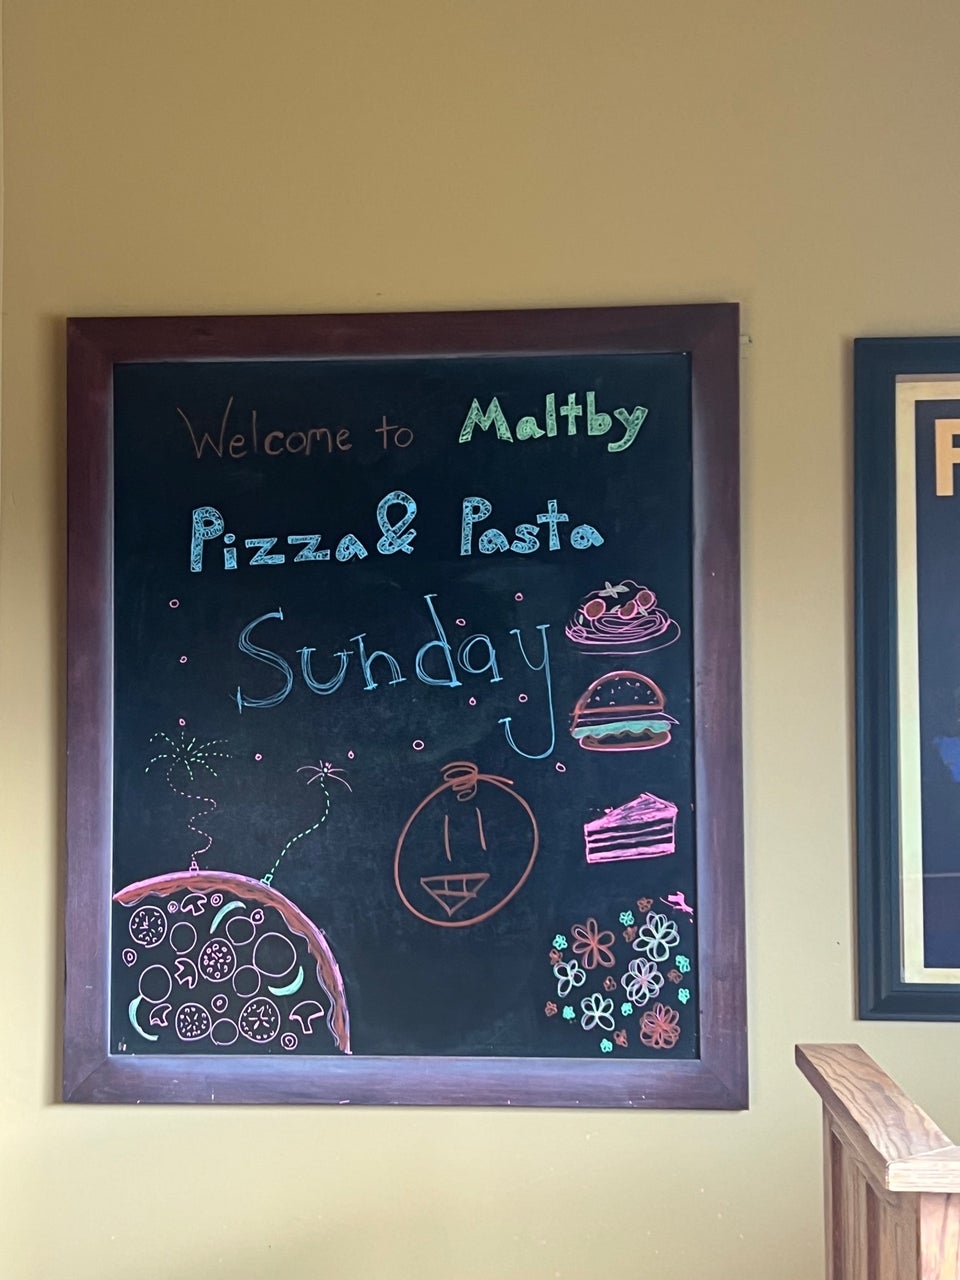 Welcome to Maltby
Pizza & Pasta
Sunday